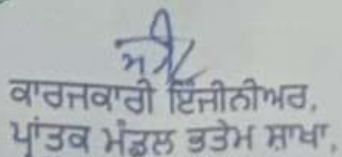 ਕਾਰਜਕਾਰੀ ਇੰਜੀਨੀਅਰ,
ਪ੍ਰਾਂਤਕ ਮੰਡਲ ਭਤੇਮ ਸ਼ਾਖਾ,